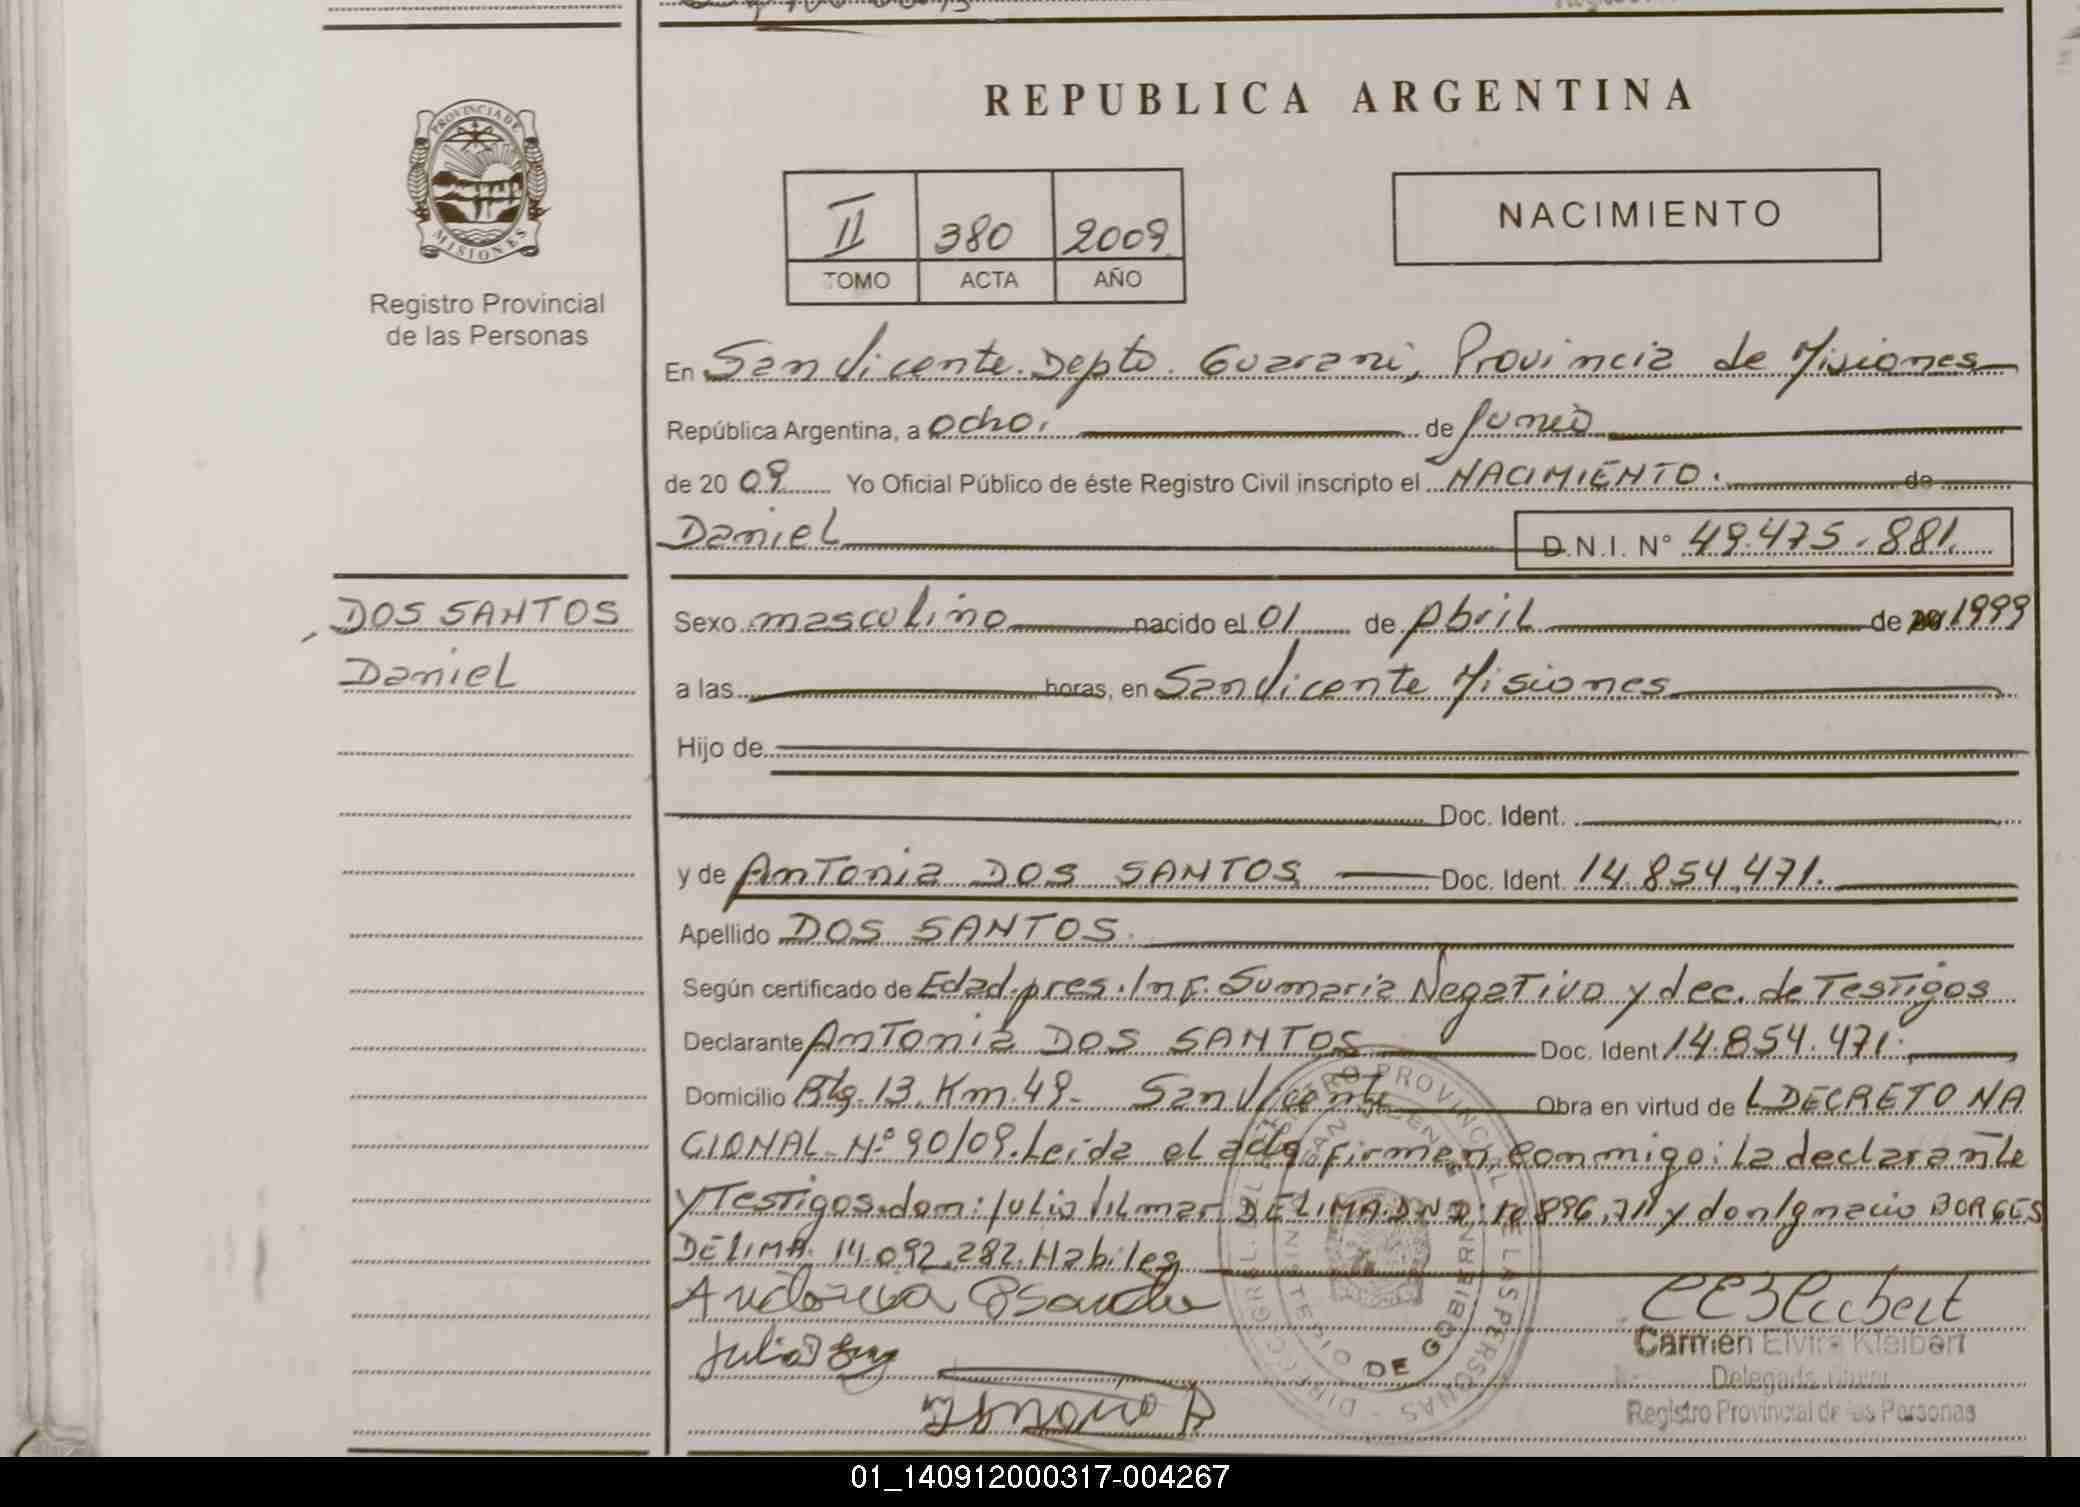 REPUBLICA ARGENTINA
PROVINCIA DE
MISIONES
Registro Provincial
de las Personas
II 380 2009
TOMO ACTA AÑO
NACIMIENTO
En San Vicente. Depto. Guarani, Provincia de Misiones
República Argentina, a ocho. de Junio
de 20 09 Yo Oficial Público de éste Registro Civil inscripto el NACIMIENTO. de
Daniel D.N.I. N° 49.475.881.
DOS SANTOS
Daniel
Sexo masculino nacido el 01 de Abril de 1999
a las horas, en San Vicente Misiones
Hijo de
Doc. Ident.
y de Antonia DOS SANTOS Doc. Ident. 14.854.471.
Apellido DOS SANTOS.
Según certificado de Edad.pres.Inf. Sumaria Negativo y dec. de Testigos
Declarante Antonia DOS SANTOS Doc. Ident 14.854.471.
Domicilio 13. Km.49- San Vicente Obra en virtud de L DECRETO NA
CIONAL N° 90/09. Leida el acta firman conmigo: la declarante
y Testigos don: Julio Vilmar DE LIMA y don Ignacio BORGES
DE LIMA. 14.092.282. Habiles
Carmen Elvira Kleibert
Delegada
Registro Provincial de las Personas
DE GOBIERNO
01_140912000317-004267